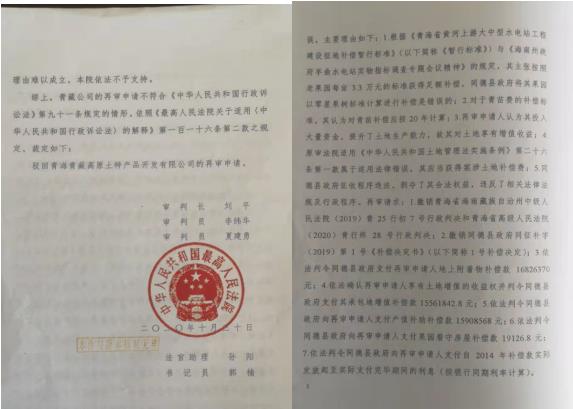 理由难以成立,本院依法不予支持。
综上,青藏公司的再审申请不符合《中华人民共和国行政诉
讼法》第九十一条规定的情形。依照《最高人民法院关于适用〈中
华人民共和国行政诉讼法〉的解释》第一百一十六条第二款之规
定,裁定如下:
驳回青海青藏高原土特产品开发有限公司的再审申请。
审 判 长 刘 平
审 判 员 李纬华
审 判 员 夏建勇
中华人民共和国最高人民法院
二〇二〇年十月三十日
本件与原本核对无异
法 官 助 理 孙 阳
书 记 员 郭 楠
误。主要理由如下:1.根据《青海省黄河上游大中型水电站工程
建设征地补偿暂行标准》(以下简称《暂行标准》)与《海南州政
府羊曲水电站实物指标调查专题会议精神》的规定,其主张按照
老果园每亩 3.3 万元的标准获得足额补偿,同德县政府将其果园
以零星果树标准计算进行补偿是错误的;2.对于青苗费的补偿标
准,其认为对青苗补偿应按 20 年计算;3.再审申请人认为其投入
大量资金,提升了土地生产能力,故其对土地享有增值收益;4.
原审法院适用《中华人民共和国土地管理法实施条例》第二十六
条第一款属于适用法律错误,其应当获得案涉土地补偿费;5.同
德县政府征收程序违法,剥夺了其合法权益,违反了相关法律法
规及行政程序。再审请求:1.撤销青海省海南藏族自治州中级人
民法院(2019)青 25 行初 7 号行政判决和青海省高级人民法院
(2020)青行终 28 号行政判决;2.撤销同德县政府同征补字
(2019)第 1 号《补偿决定书》(以下简称 1 号补偿决定);3.依
法判令同德县政府支付再审申请人地上附着物补偿款 16826370
元;4.依法确认再审申请人享有土地增值的收益权并判令同德县
政府支付其承包地增值补偿款 15561842.8 元;5.依法判令同德县
政府向再审申请人支付产值补助补偿款 15908568 元;6.依法判令
同德县政府向再审申请人支付果园看守房屋补偿款 19126.8 元;
7.依法判令同德县政府向再审申请人支付自 2014 年补偿款实际
发放起至实际支付完毕期间的利息(按银行同期利率计算)。